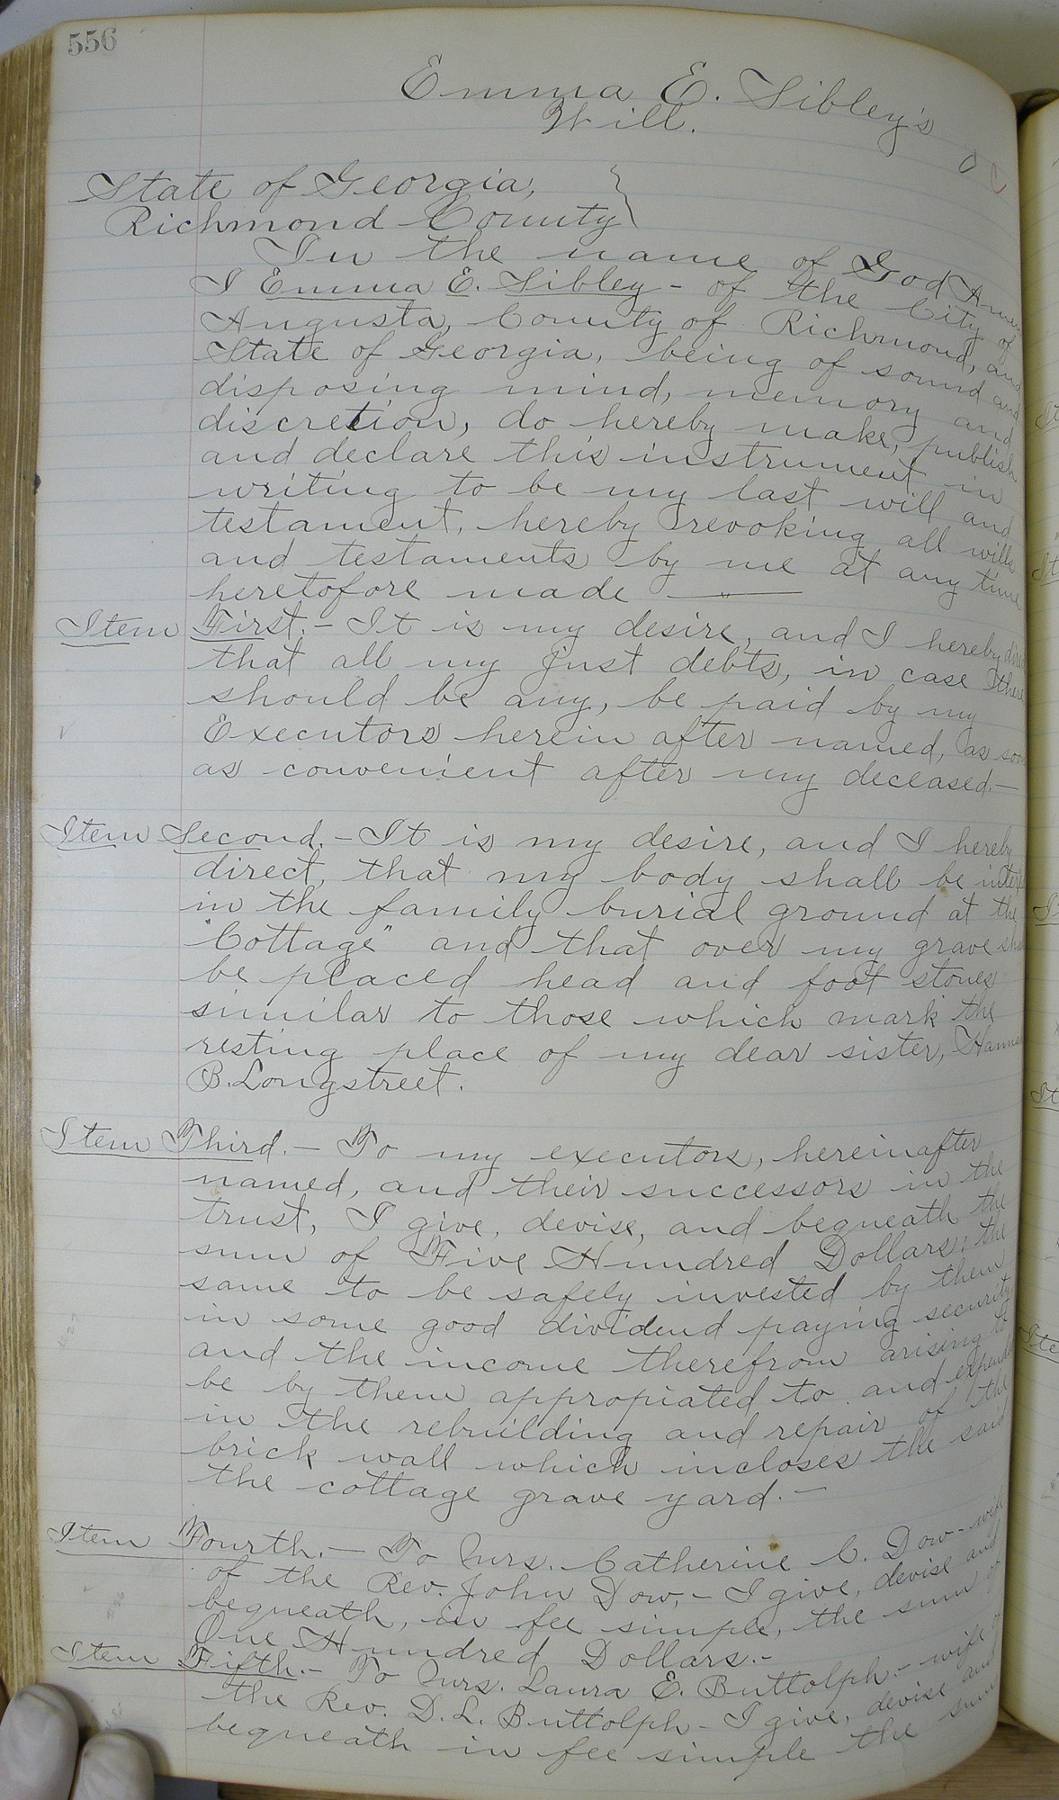 556
Emma E. Sibley's
Will.
State of Georgia,
Richmond County
In the name of God Amen
I Emma E. Sibley - of the City of
Augusta, County of Richmond, and
State of Georgia, being of sound and
disposing mind, memory and
discretion, do hereby make, publish
and declare this instrument in
writing to be my last will and
testament, hereby revoking all wills
and testaments by me at any time
heretofore made
Item First.- It is my desire, and I hereby direct
that all my just debts, in case there
should be any, be paid by my
Executors herein after named, as soon
as convenient after my deceased-
Item Second.- It is my desire, and I hereby
direct, that my body shall be
in the family burial ground at the
"Cottage" and that over my grave
be placed head and foot stones
similar to those which mark the
resting place of my dear sister,
B. Longstreet.
Item Third.- To my executors, hereinafter
named, and their successors in the
trust, I give, devise, and begneath the
sum of Five Hundred Dollars; the
same to be safely invested by them
in some good dividend paying security
and the income therefrom arising to
be by them appropiated to and
in the rebuilding and repair of the
brick wall which incloses the said
the cottage grave yard.-
Item Fourth.- To Mrs. Catherine C. Dow- wife
of the Rev. John Dow,- I give, devise and
begneath, in fee simple, the sum of
One Hundred Dollars.-
Item Fifth.- To Mrs. Laura E. Buttolph.- wife of
the Rev. D. L. Buttolph- I give, devise and
begneath in fee simple the sum